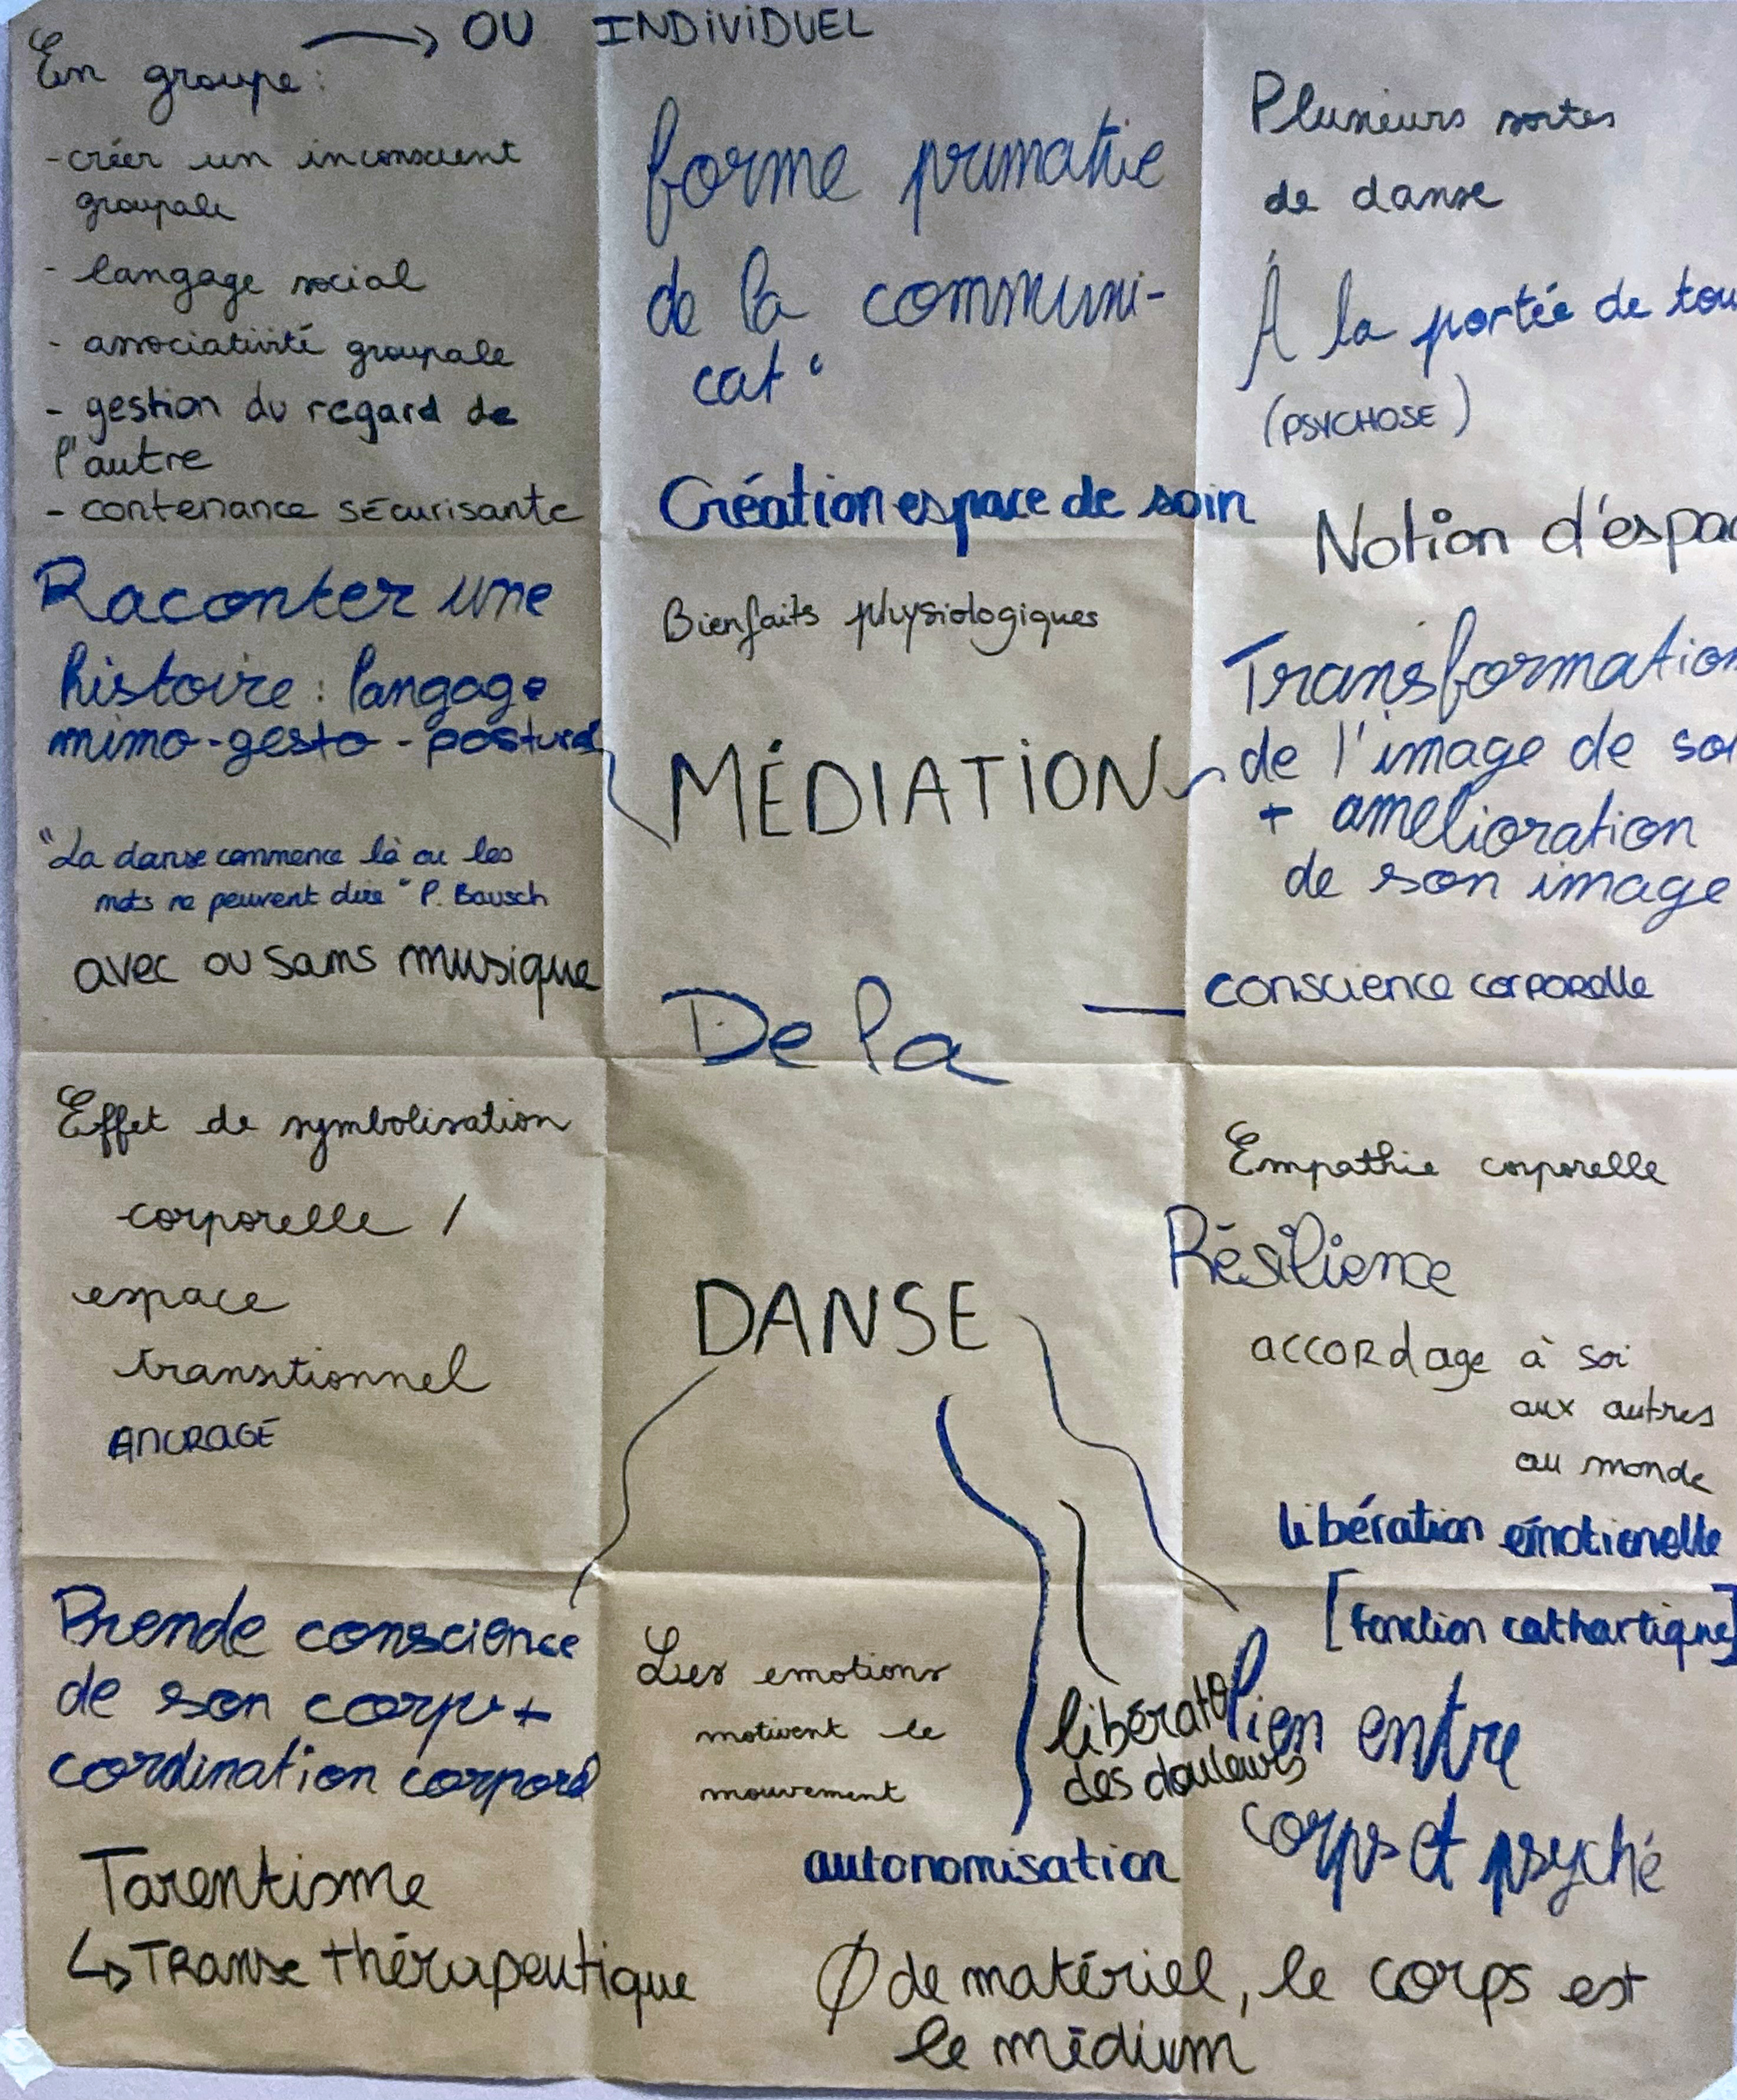 En groupe : → OU INDIVIDUEL
- créer un inconscient
groupale
- langage social
- associativité groupale
- gestion du regard de
l'autre
- contenance sécurisante
Raconter une
histoire : langage
mimo-gesto-postural
"La danse commence là ou les
mots ne peuvent dire" P. Bausch
avec ou sans musique
Effet de symbolisation
corporelle /
espace
transitionnel
ANCRAGE
Prende conscience
de son corps +
cordination corporel
Tarentisme
↳ Transe thérapeutique
forme primative
de la communi-
cat°
Création espace de soin
Bienfaits physiologiques
MÉDIATION
De la
DANSE
Les emotions
motivent le
mouvement
autonomisation
libérato
des douleurs
Ø de matériel, le corps est
le médium
Plusieurs sortes
de danse
À la portée de tou
(PSYCHOSE)
Notion d'espac
Transformation
de l'image de soi
+ amélioration
de son image
conscience corporelle
Empathie corporelle
Résilience
accordage à soi
aux autres
au monde
libération émotionelle
[fonction cathartique]
lien entre
corps et psyché